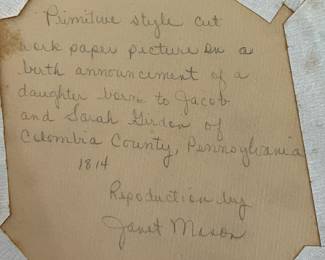 Primitive style cut
work paper picture on a
birth announcement of a
daughter born to Jacob
and Sarah of
Colombia County, Pennsylvania
1814
Repoduction by
Janet Mason